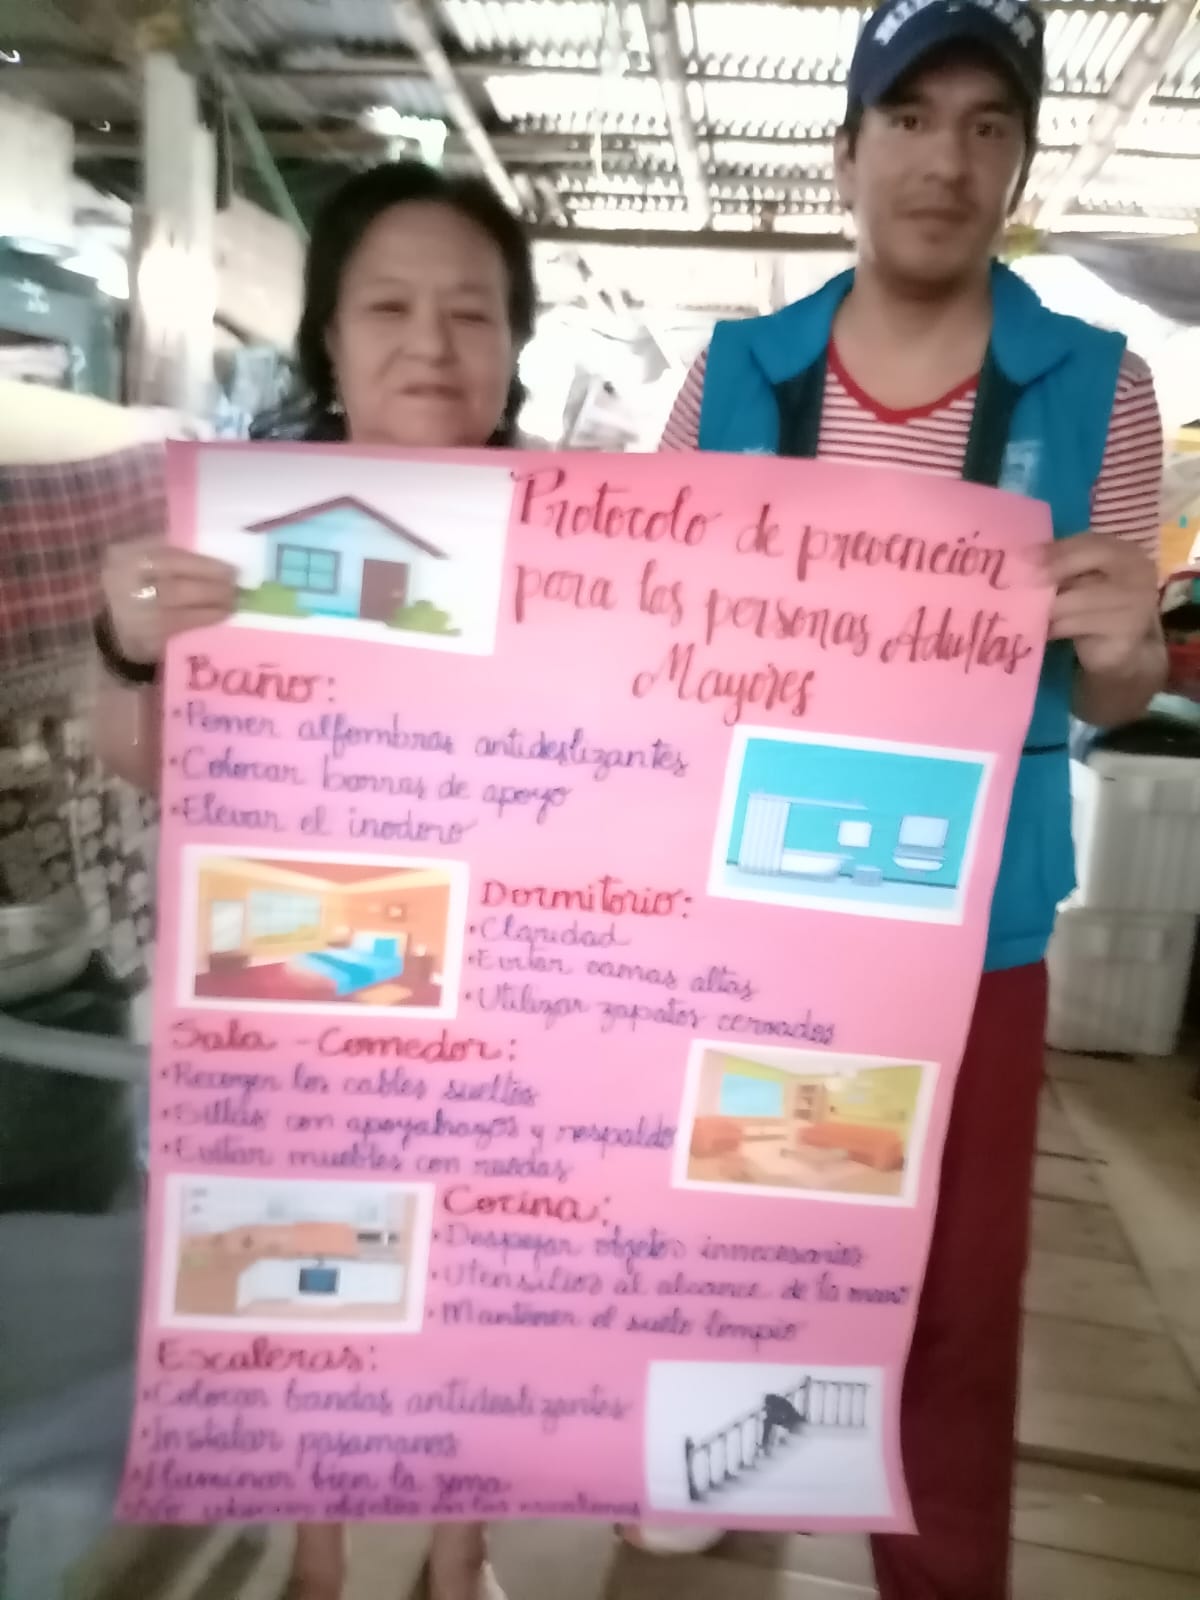 Protocolo de prevención
para las personas Adultas
Mayores
Baño:
• Poner alfombras antideslizantes
• Colocar barras de apoyo
• Elevar el inodoro
Dormitorio:
• Claridad
• Evitar camas altas
• Utilizar zapatos cerrados
Sala - Comedor:
• Recoger los cables sueltos
• Sillas con apoyabrazos y respaldo
• Evitar muebles con ruedas
Cocina:
• Despejar objetos innecesarios
• Utensilios al alcance de la mano
• Mantener el suelo limpio
Escaleras:
• Colocar bandas antideslizantes
• Instalar pasamanos
• Iluminar bien la zona
• No objetos en las escaleras